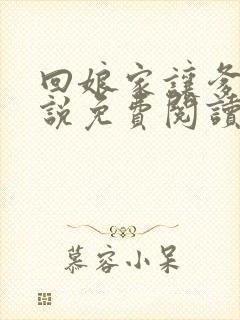 回娘家讓
說免費閱讀
慕容小呆